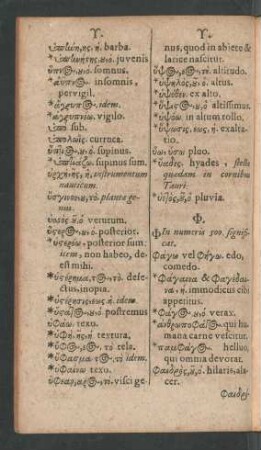 Υ.
ὑπήνη, ης, ἡ. barba.
* ὑπηνήτης, ου, ὁ. juvenis
ὕπνος, ου, ὁ. somnus.
* ἄυπνος. insomnis,
pervigil.
* ἀγρυπνος, idem.
* ἀγρυπνέω. vigilo.
ὑπὸ sub.
curruca.
ὕπτιος, ου, ὁ. supinus.
* ὑπτιάζω. supinus sum.
instrumentum
nauticum.
planta ge-
nus.
ὑσσὸς ὁ. verutum.
ὕστερος, ου, ὁ. posterior.
* ὑστερέω, posterior sum:
item, non habeo, de-
est mihi.
* ὑστέρημα, τος, τό. defe-
ctus, inopia.
* ὑστέρησις, εως, ἡ. idem.
* ὕστατος, ου, ὁ. postremus
ὑφαίνω texo.
* ὑφὴ, ῆς, ἡ. textura.
* ὕφος, εος, τό. tela.
* ὕφασμα, τος, τό. idem.
* texo.
visci ge-
Υ.
nus, quod in abiete &
larice nascitur.
ὕψος, εος, τό. altitudo.
* ὑψηλὸς, οῦ, ὁ. altus.
* ὑψόθεν. ex alto.
* ὕψιστος, ου, ὁ altissimus.
* ὑψόω in altum tollo.
* ὕψωσις, εως, ἡ. exalta-
tio.
ὕω, ὕσω pluo.
* ὑάδες. hyades, stellæ
quædam in cornibus
Tauri.
* ὑετὸς, οῦ, ὁ pluvia.
Φ.
Φ In numeris 500. signifi-
cat.
φάγω vel φήγω. edo,
comedo.
* φάγαινα & φαγέδαι-
να, η. immodicus cibi
appetitus.
* φάγος, ου, ὁ vorax.
* ἀνθρωποφάγος. qui hu-
mana carne vescitur.
* παμφάγος. helluo,
qui omnia devorat.
φαιδρὸς, οῦ, ὁ. hilaris, ala-
cer.
φαιδρύ-